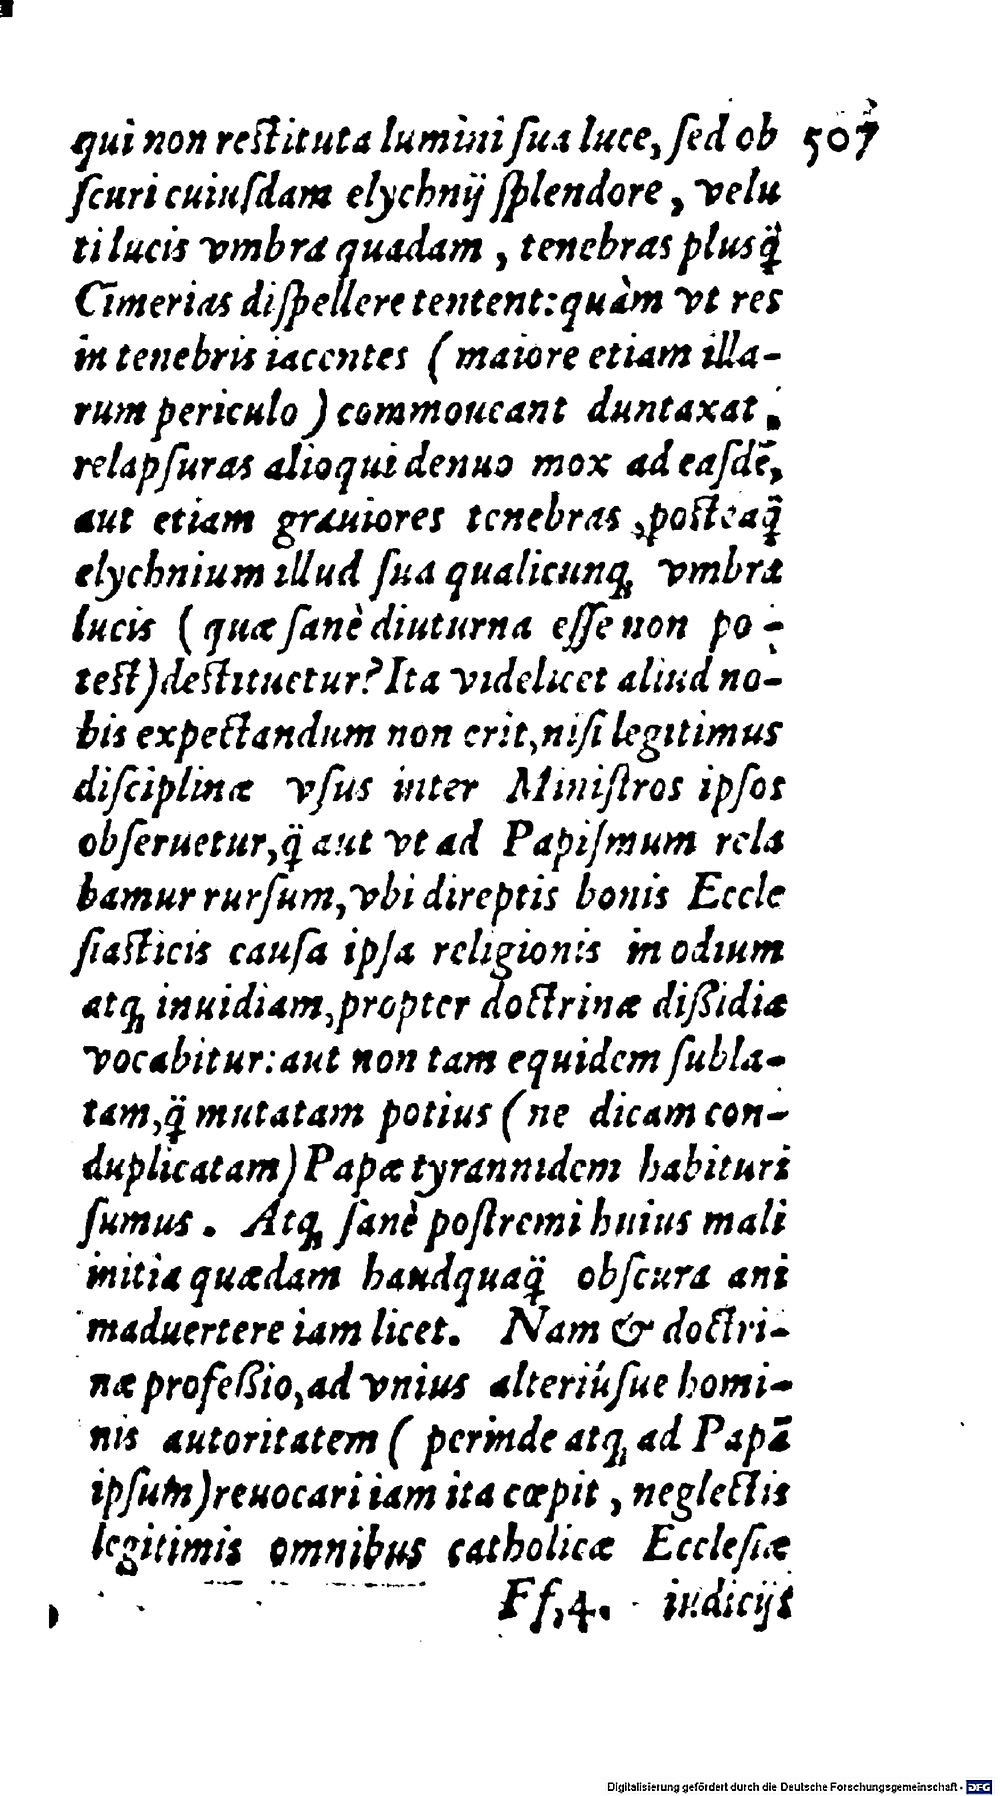 qui non restituta lumini ſua luce, ſed ob 507
ſcuri cuiuſdam elychnij ſplendore, velu
ti lucis vmbra quadam, tenebras plusq̃
Cīmerias diſpellere tentent: quàm vt res
in tenebris iacentes (maiore etiam illa-
rum periculo) commoueant duntaxat,
relapſuras alioqui denuo mox ad eaſdē,
aut etiam grauiores tenebras, posteaq̃
elychnium illud ſua qualicunq; vmbra
lucis (quæ ſanè diuturna eſſe non po-
test) destituetur? Ita videlicet aliud no-
bis expectandum non erit, niſi legitimus
diſciplinæ vſus inter Miniſtros ipſos
obſeruetur, q̃ aut vt ad Papiſmum rela
bamur rurſum, vbi direptis bonis Eccle
ſiasticis cauſa ipſa religionis in odium
atq; inuidiam, propter doctrinæ dißidia
vocabitur: aut non tam equidem ſubla-
tam, q̃ mutatam potius (ne dicam con-
duplicatam) Papæ tyrannidem habituri
ſumus. Atq; ſanè poſtremi huius mali
initia quædam haudquaq̃ obſcura ani
maduertere iam licet. Nam & doctri-
næ profeßio, ad vnius alteriúſue homi-
nis autoritatem (perinde atq; ad Papā
ipſum) reuocari iam ita cœpit, neglectis
legitimis omnibus catholicæ Eccleſiæ
Ff,4. iudicijs
Digitalisierung gefördert durch die Deutsche Forschungsgemeinschaft - DFG